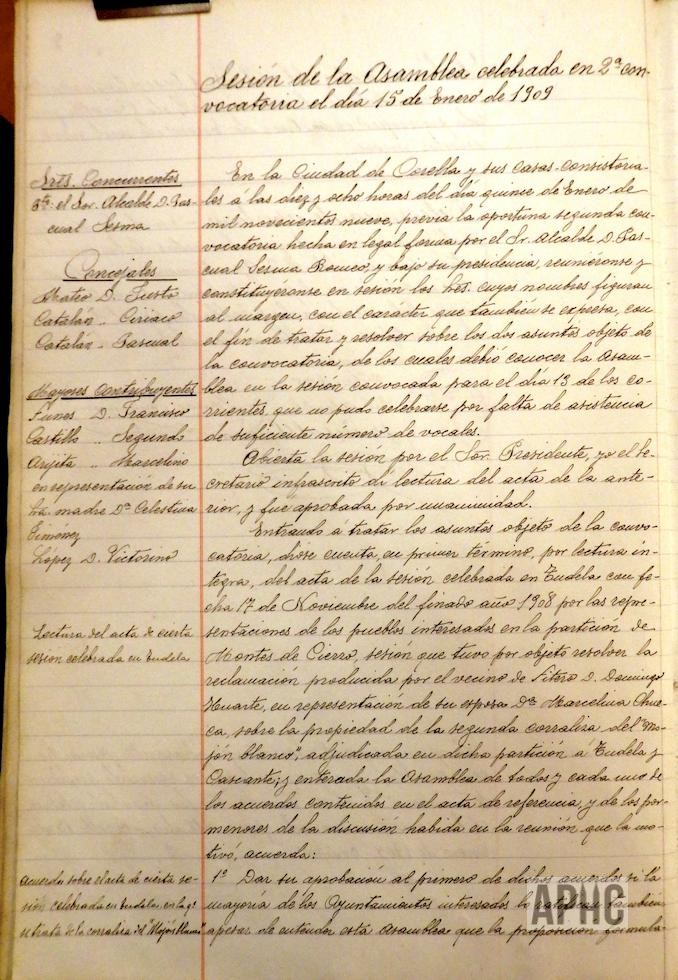 Sesión de la Asamblea celebrada en 2ª con-
vocatoria el día 15 de Enero de 1909
Srts. Concurrentes
Pte. el Sor. Alcalde D. Pas-
cual Sesma
Concejales
Mateo D. Justo
Catalán .. Ciriaco
Catalán .. Pascual
Mayores Contribuyentes
Funes D. Francisco
Castillo .. Segundo
Arjita .. Marcelino
en representación de su
madre Dª Celestina
Giménez
López D. Victorino
Lectura del acta de cierta
sesion celebrada en Tudela
Acuerdo sobre el acta de cierta se-
sión celebrada en Tudela, en la qe
se trata de la corraliza del "Mojón blanco"
En la Ciudad de Corella y sus casas-consistoria-
les á las diez y ocho horas del día quince de Enero de
mil novecientos nueve, previa la oportuna segunda con-
vocatoria hecha en legal forma por el Sr. Alcalde D. Pas-
cual Sesma Romeo, y bajo su presidencia, reuniéronse y
constituyéronse en sesión los Sres. cuyos nombres figuran
al margen, con el caracter que también se expresa, con
el fin de tratar y resolver sobre los dos asuntos objeto de
la convocatoria, de los cuales debió conocer la Asam-
blea en la sesión convocada para el día 13 de los co-
rrientes, que no pudo celebrarse por falta de asistencia
de suficiente número de vocales.
Abierta la sesión por el Sor. Presidente, yo el se-
cretario infrascrito dí lectura del acta de la ante-
rior, y fue aprobada por unanimidad.
Entrando á tratar los asuntos objeto de la convo-
catoria, diose cuenta, en primer término, por lectura ín-
tegra, del acta de la sesión celebrada en Tudela con fe-
cha 17 de Noviembre del finado año 1908 por las repre-
sentaciones de los pueblos interesados en la partición de
Montes de Cierzo, sesión que tuvo por objeto resolver la
reclamación producida por el vecino de Fitero D. Domingo
Huarte, en representación de su esposa Dª Marcelina Chue-
ca, sobre la propiedad de la segunda corraliza del "Mo-
jón blanco", adjudicada en dicha partición á Tudela y
Cascante; y enterada la Asamblea de todos y cada uno de
los acuerdos contenidos en el acta de referencia, y de los por-
menores de la discusión habida en la reunión que la mo-
tivó, acuerda:
1º Dar su aprobación al primero de dichos acuerdos si la
mayoría de los Ayuntamientos interesados lo ratifican también
apesar de entender esta Asamblea que la proposición formula-
APHC